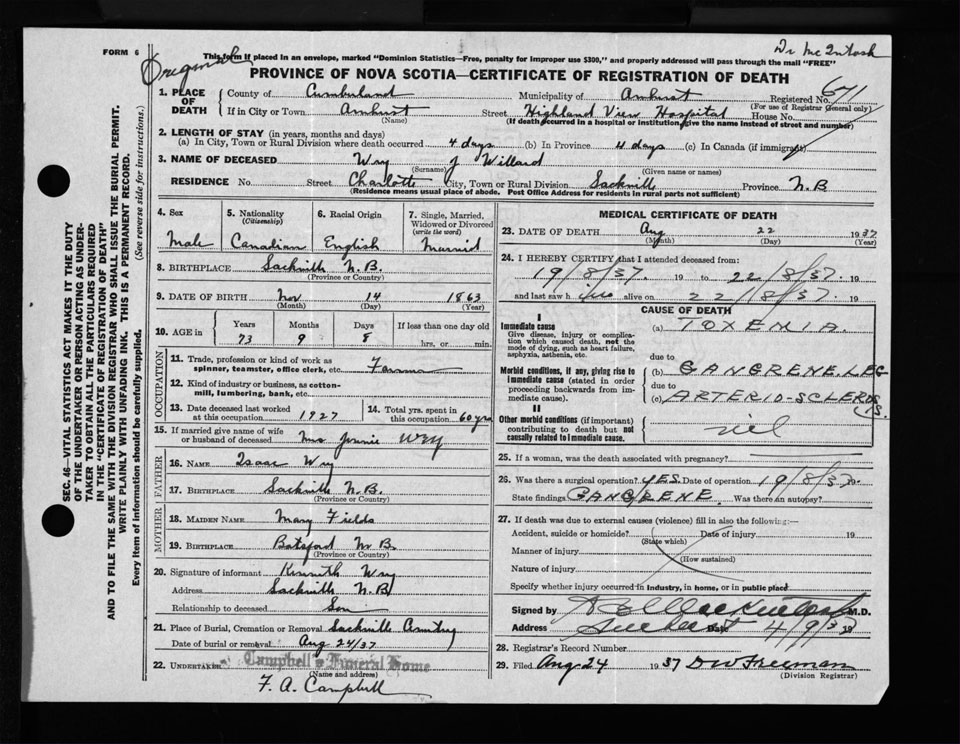 FORM 6
Original
Dr McIntosh
This form if placed in an envelope, marked "Dominion Statistics—Free, penalty for improper use $300," and properly addressed will pass through the mail "FREE"
PROVINCE OF NOVA SCOTIA—CERTIFICATE OF REGISTRATION OF DEATH
1. PLACE OF DEATH
County of Cumberland Municipality of Amherst Registered No. 671
(For use of Registrar General only)
If in City or Town Amherst Street Highland View Hospital House No.
(Name) (If death occurred in a hospital or institution, give the name instead of street and number)
2. LENGTH OF STAY (in years, months and days)
(a) In City, Town or Rural Division where death occurred 4 days (b) In Province 4 days (c) In Canada (if immigrant)
3. NAME OF DECEASED Wry J Willard
(Surname) (Given name or names)
RESIDENCE No. Street Charlotte City, Town or Rural Division Sackville Province N.B
(Residence means usual place of abode. Post Office Address for residents in rural parts not sufficient)
4. Sex
Male
5. Nationality
(Citizenship)
Canadian
6. Racial Origin
English
7. Single, Married, Widowed or Divorced
(write the word)
Married
8. BIRTHPLACE Sackville N.B.
(Province or Country)
9. DATE OF BIRTH Nov 14 1863
(Month) (Day) (Year)
10. AGE in Years Months Days If less than one day old
73 9 8 hrs, or min.
OCCUPATION
11. Trade, profession or kind of work as spinner, teamster, office clerk, etc. Farmer
12. Kind of industry or business, as cotton-mill, lumbering, bank, etc.
13. Date deceased last worked at this occupation 1927
14. Total yrs. spent in this occupation 60 yrs
15. If married give name of wife or husband of deceased Mrs Jennie Wry
FATHER
16. NAME Isaac Wry
17. BIRTHPLACE Sackville N.B.
(Province or Country)
MOTHER
18. MAIDEN NAME Mary Fields
19. BIRTHPLACE Botsford N B.
(Province or Country)
20. Signature of informant Kenneth Wry
Address Sackville N.B
Relationship to deceased Son
21. Place of Burial, Cremation or Removal Sackville Cemetery
Date of burial or removal Aug 24/37
22. UNDERTAKER Campbell's Funeral Home
(Name and address)
F. A. Campbell
MEDICAL CERTIFICATE OF DEATH
23. DATE OF DEATH Aug 22 1937
(Month) (Day) (Year)
24. I HEREBY CERTIFY that I attended deceased from:
19/8/37. 19 to 22/8/37. 19
and last saw him alive on 22/8/37. 19
CAUSE OF DEATH
I
Immediate cause
Give disease, injury or complication which caused death, not the mode of dying, such as heart failure, asphyxia, asthenia, etc.
(a) TOXEMIA.
due to
Morbid conditions, if any, giving rise to immediate cause (stated in order proceeding backwards from immediate cause).
(b) GANGRENE. LEG
due to
(c) ARTERIO-SCLEROSIS.
II
Other morbid conditions (if important) contributing to death but not causally related to immediate cause.
nil
25. If a woman, was the death associated with pregnancy?
26. Was there a surgical operation? YES. Date of operation 19/8/37.
State findings GANGRENE. Was there an autopsy?
27. If death was due to external causes (violence) fill in also the following:—
Accident, suicide or homicide? Date of injury 19
(State which)
Manner of injury
(How sustained)
Nature of injury
Specify whether injury occurred in industry, in home, or in public place
Signed by M.D.
Address Amherst Date 4/9/37 19
28. Registrar's Record Number
29. Filed Aug 24 1937 D W Freeman
(Division Registrar)
SEC. 46—VITAL STATISTICS ACT MAKES IT THE DUTY
OF THE UNDERTAKER OR PERSON ACTING AS UNDER-
TAKER TO OBTAIN ALL THE PARTICULARS REQUIRED
IN THE "CERTIFICATE OF REGISTRATION OF DEATH"
AND TO FILE THE SAME WITH THE DIVISION REGISTRAR WHO SHALL ISSUE THE BURIAL PERMIT.
WRITE PLAINLY WITH UNFADING INK. THIS IS A PERMANENT RECORD.
Every item of information should be carefully supplied. (See reverse side for instructions.)